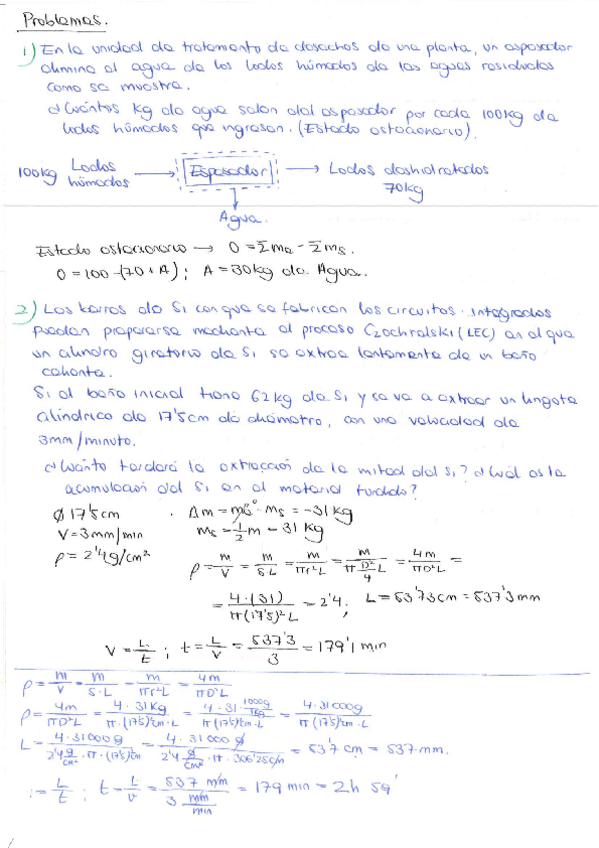 Problemas.
1) En la unidad de tratamiento de desechos de una planta, un espesador
elimina el agua de los lodos húmedos de las aguas residuales
como se muestra.
¿Cuántos Kg de agua salen del espesador por cada 100kg de
lodos húmedos que ingresan. (Estado estacionario).
100kg Lodos húmedos → Espesador → Lodos deshidratados
70kg
Agua.
Estado estacionario → 0 = Σme - Σms.
0 = 100 - (70 + A) ; A = 30 kg de Agua.
2) Las barras de Si con que se fabrican los circuitos integrados
pueden prepararse mediante el proceso Czochralski (LEC) en el que
un cilindro giratorio de Si se extrae lentamente de un baño
caliente.
Si el baño inicial tiene 62 kg de Si y se va a extraer un lingote
cilíndrico de 17'5cm de diámetro, con una velocidad de
3mm/minuto.
¿Cuánto tardará la extracción de la mitad del Si? ¿Cuál es la
acumulación del Si en el material fundido?
Ø 17'5cm · Δm = me⁰ - ms = -31 kg
V = 3mm/min ms = 1/2 m = 31 kg
ρ = 2'4g/cm² ρ = m/V = m/S·L = m/πr²L = m/(π D²/4 L) = 4m/πD²L =
= 4·(31)/π(17'5)²L = 2'4 ; L = 53'73cm = 537'3mm
V = L/t ; t = L/V = 537'3/3 = 179'1 min
ρ = m/V = m/S·L = m/πr²L = 4m/πD²L
ρ = 4m/πD²L = 4·31Kg/π·(17'5)²cm·L = 4·31·1000g/1kg/π(17'5)²cm·L = 4·31000g/π(17'5)²cm·L
L = 4·31000g/2'4 g/cm²·π·(17'5)²cm = 4·31000g/2'4 g/cm²·π·306'25cm = 53'7 cm = 537 mm.
= L/t ; t = L/v = 537 mm/3 mm/min = 179 min = 2h 59'